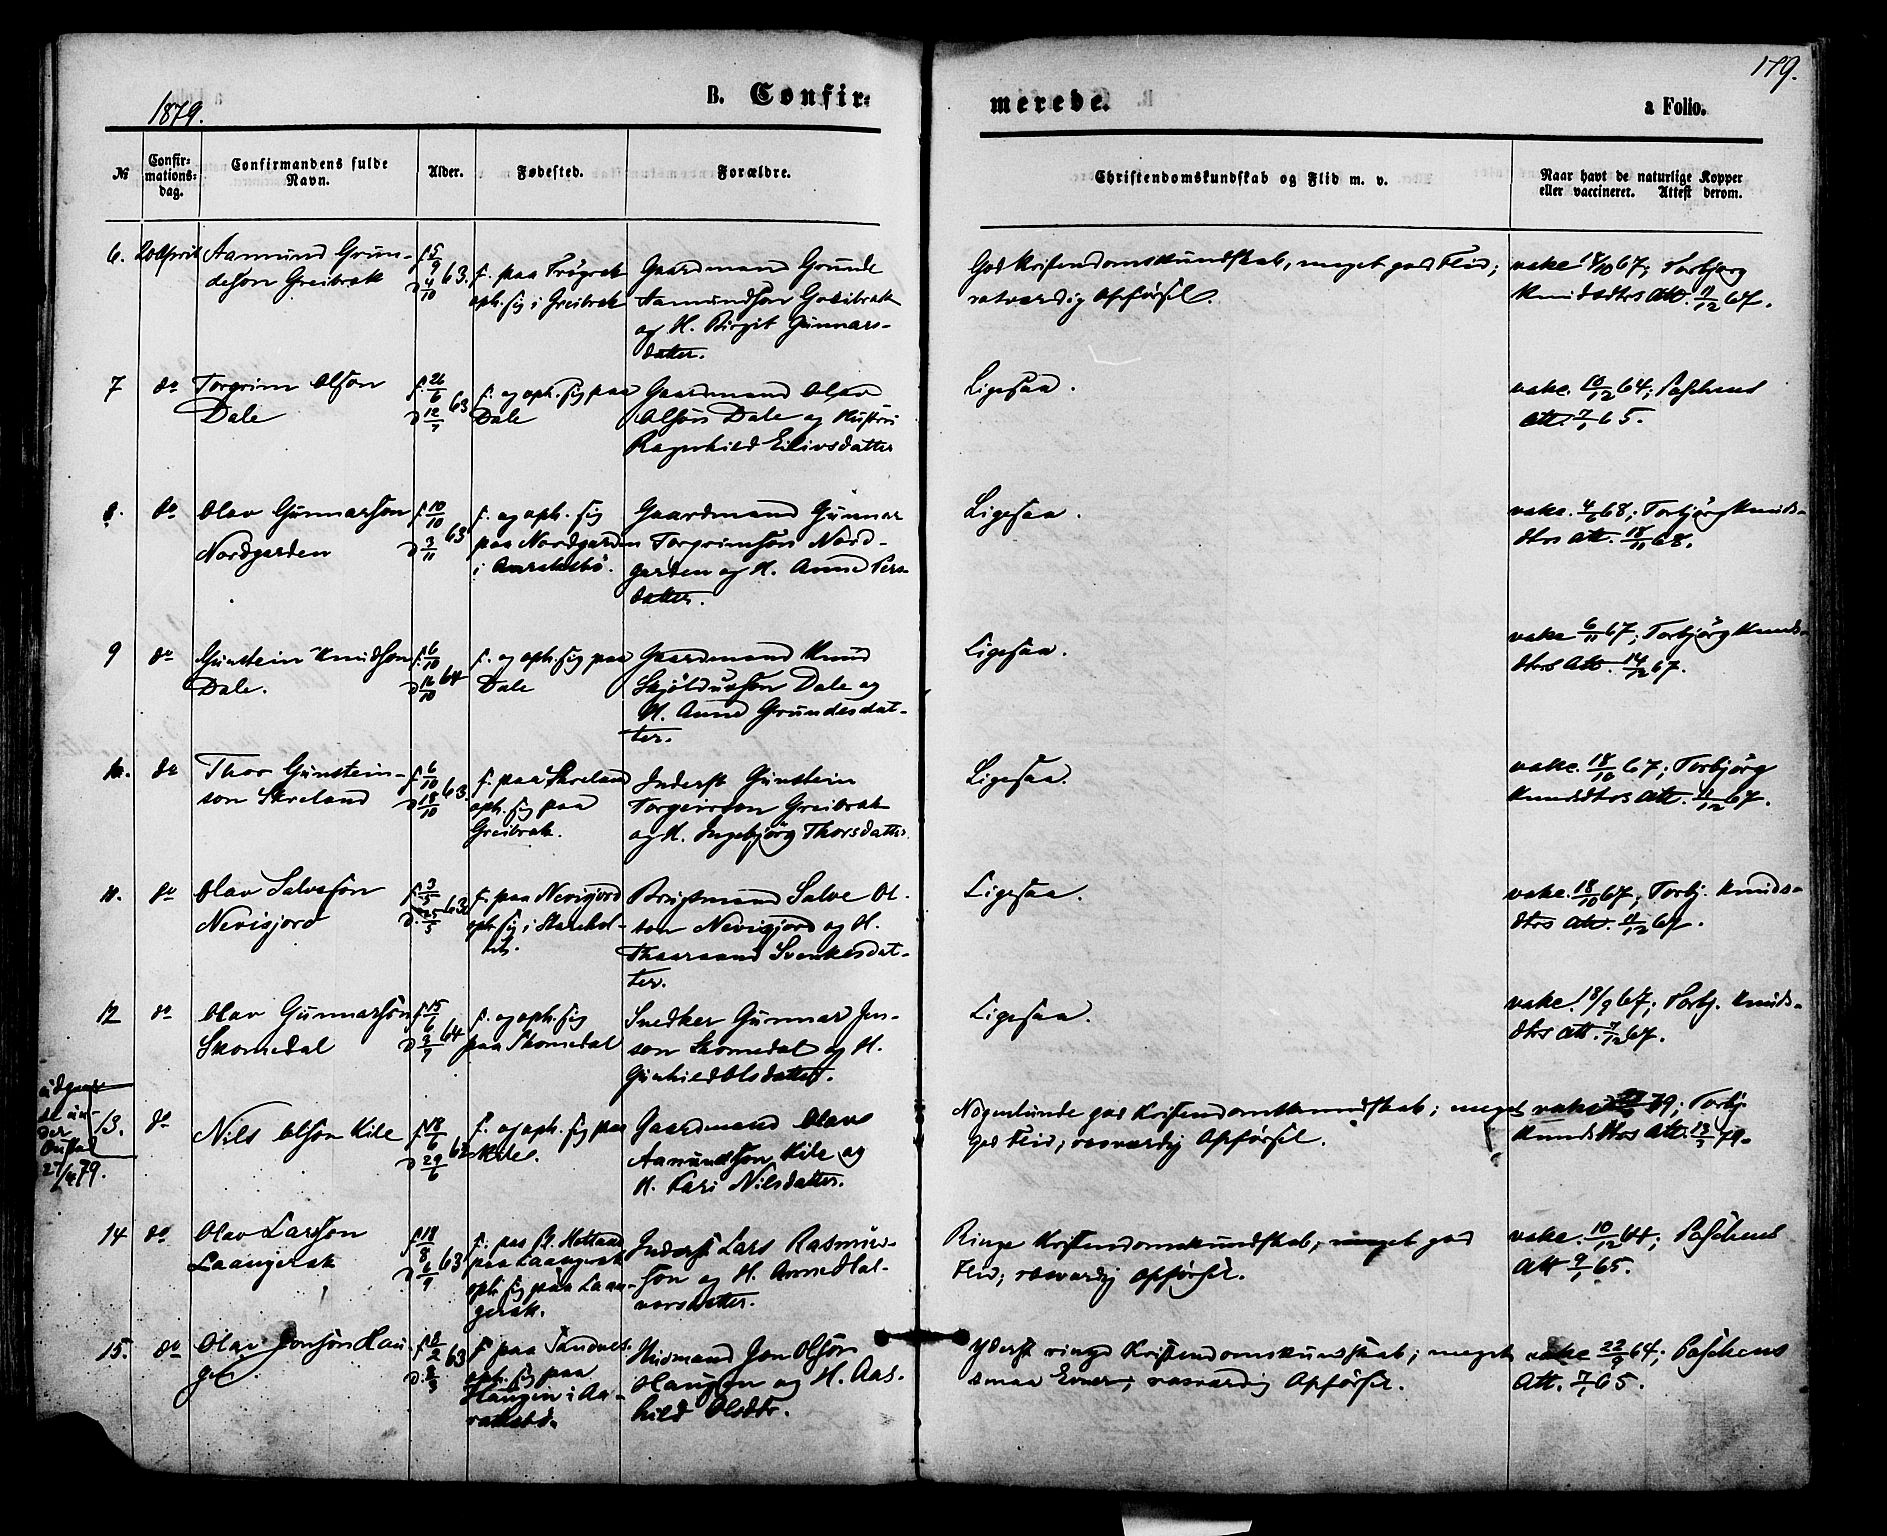 179.
1879.
B. Confir-
merede.
a Folio.
№
Confir-
mations-
dag.
Confirmandens fulde
Navn.
Alder.
Fødested.
Forældre.
Christendomskundskab og Flid m. v.
Naar havt de naturlige Kopper
eller vaccineret. Attest derom.
6. 20 April Aamund Grun-
deson Greibrok
f. 5/9 63.
d. 4/10
f. paa Trygrok
oph. sig i Greibrok
Gaardmand Grunde
Aamundson Greibrok
og H. Birgit Gunnars-
datter.
God Kristendomskundskab, meget god Flid;
rosværdig Opførsel.
vakc. 18/10 67; Torbjørg
Knudsdtrs Att. 11/12 67.
7 do Torgrim Olson
Dale
f. 26/6 63
d. 12/7
f. og oph. sig paa
Dale
Gaardmand Olav
Olson Dale og Hustru
Ragnhild Eilivsdatter
Ligesaa.
vakc. 10/12 64; Paschens
Att. 7/1 65.
8. do Olav Gunnarson
Nordgarden
f. 10/10 63
d. 3/11
f. og oph. sig
paa Nordgarden
i Aaraksbø.
Gaardmand Gunnar
Torgrimson Nord-
garden og H. Anne Pers-
datter.
Ligesaa.
vakc. 4/6 68; Torbjørg Knuds-
dtrs Att. 18/11 68.
9 do Gunstein Knudson
Dale.
f. 6/10 64
d. 16/10
f. og oph. sig paa
Dale
Gaardmand Knud
Skjoldulfson Dale og
H. Anne Grundesdat-
ter.
Ligesaa.
vakc. 6/11 67; Torbjørg Knuds-
dtrs Att. 14/12 67.
10. do Thor Gunstein-
son Skreland
f. 6/10 63.
d. 18/10
f. paa Skreland
oph. sig paa
Greibrok.
Inderst Gunstein
Torgeirson Greibrok
og H. Ingebjørg Thorsdatter
Ligesaa.
vakc. 18/10 67; Torbjørg
Knudsdtrs Att. 11/12 67.
11. do Olav Salveson
Nevisjord
f. 3/5 63.
d. 25/5
f. paa Nevisjord
oph. sig i
Brugsmand Salve Ol-
son Nevisjord og H.
Thaaraand Svenkesdat-
ter.
Ligesaa.
vakc. 18/10 67; Torbj. Knuds-
dtrs Att. 11/12 67.
12 do Olav Gunnarson
Skomedal
f. 15/6 64
d. 3/7
f. og oph. sig
paa Skomedal
Snedker Gunnar Jen-
son Skomedal og H.
Gunhild Olsdatter.
Ligesaa.
vakc. 18/9 67; Torbj. Knuds-
dtrs Att. 7/12 67.
27/4 79.
13. do
Nils Olson Kile
f. 18/6 62
d. 29/6
f. og oph. sig paa
Kile.
Gaardmand Olav
Aamundson Kile og
H. Kari Nilsdatter.
Nogenlunde god Kristendomskundskab; meget
god Flid; rosværdig Opførsel.
79; Torbj.
Knudsdtrs Att. 13/3 79.
14 do Olav Larson
Laangerak
f. 18/8 63
d. 6/9
f. paa
paa Laangerak
oph. sig paa Laan-
gerak.
Inderst Lars Rasmus-
son og H. Anne Hal-
vorsdatter.
Ringe Kristendomskundskab, meget god
Flid; rosværdig Opførsel.
vakc. 10/12 64; Paschens
Att 9/1 65.
15. do Olav Jonson Hau-
gen
f. 8/2 63
d. 8/3
f. paa Sandnes
oph. sig paa
Haugen i Aa-
raksbø.
Husmand Jon Olson
Haugen og H. Aas-
hild Olsdtr.
Yderst ringe Kristendomskundskab; meget
smaa Evner; rosværdig Opførsel.
vakc 22/9 64; Paschens
Att. 7/1 65.